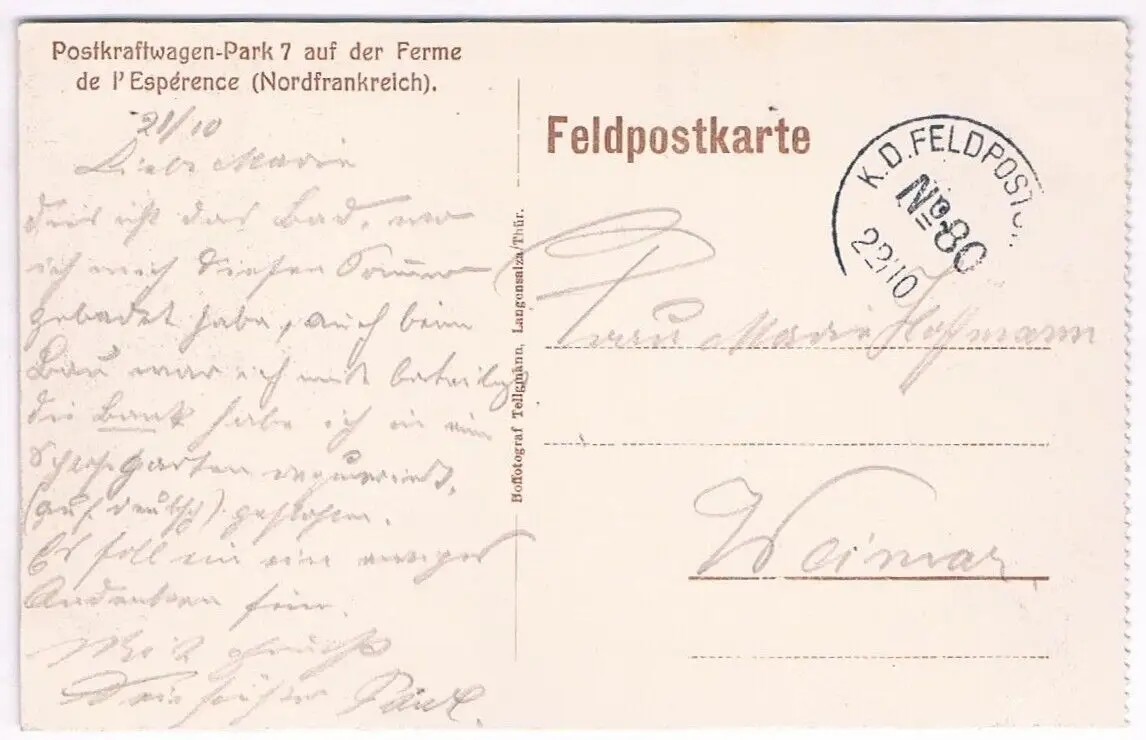 Postkraftwagen-Park 7 auf der Ferme
de l'Espérence (Nordfrankreich).
21/10
Liebe Marie
dies ist das Bad, wo
ich mich diesen Sommer
gebadet habe, auch beim
Bau war ich mit beteiligt
die Bank habe ich in ein
Schloßgarten requiriert,
(auf deutsch) gestohlen.
Es soll mir ein ewiges
Andenken sein.
Mit Gruß
Dein Paul.
Hoffotograf Tellgmann, Langensalza/Thür.
Feldpostkarte
K.D. FELDPOST
No. 80
22/10
Frau Marie Hoffmann
Weimar